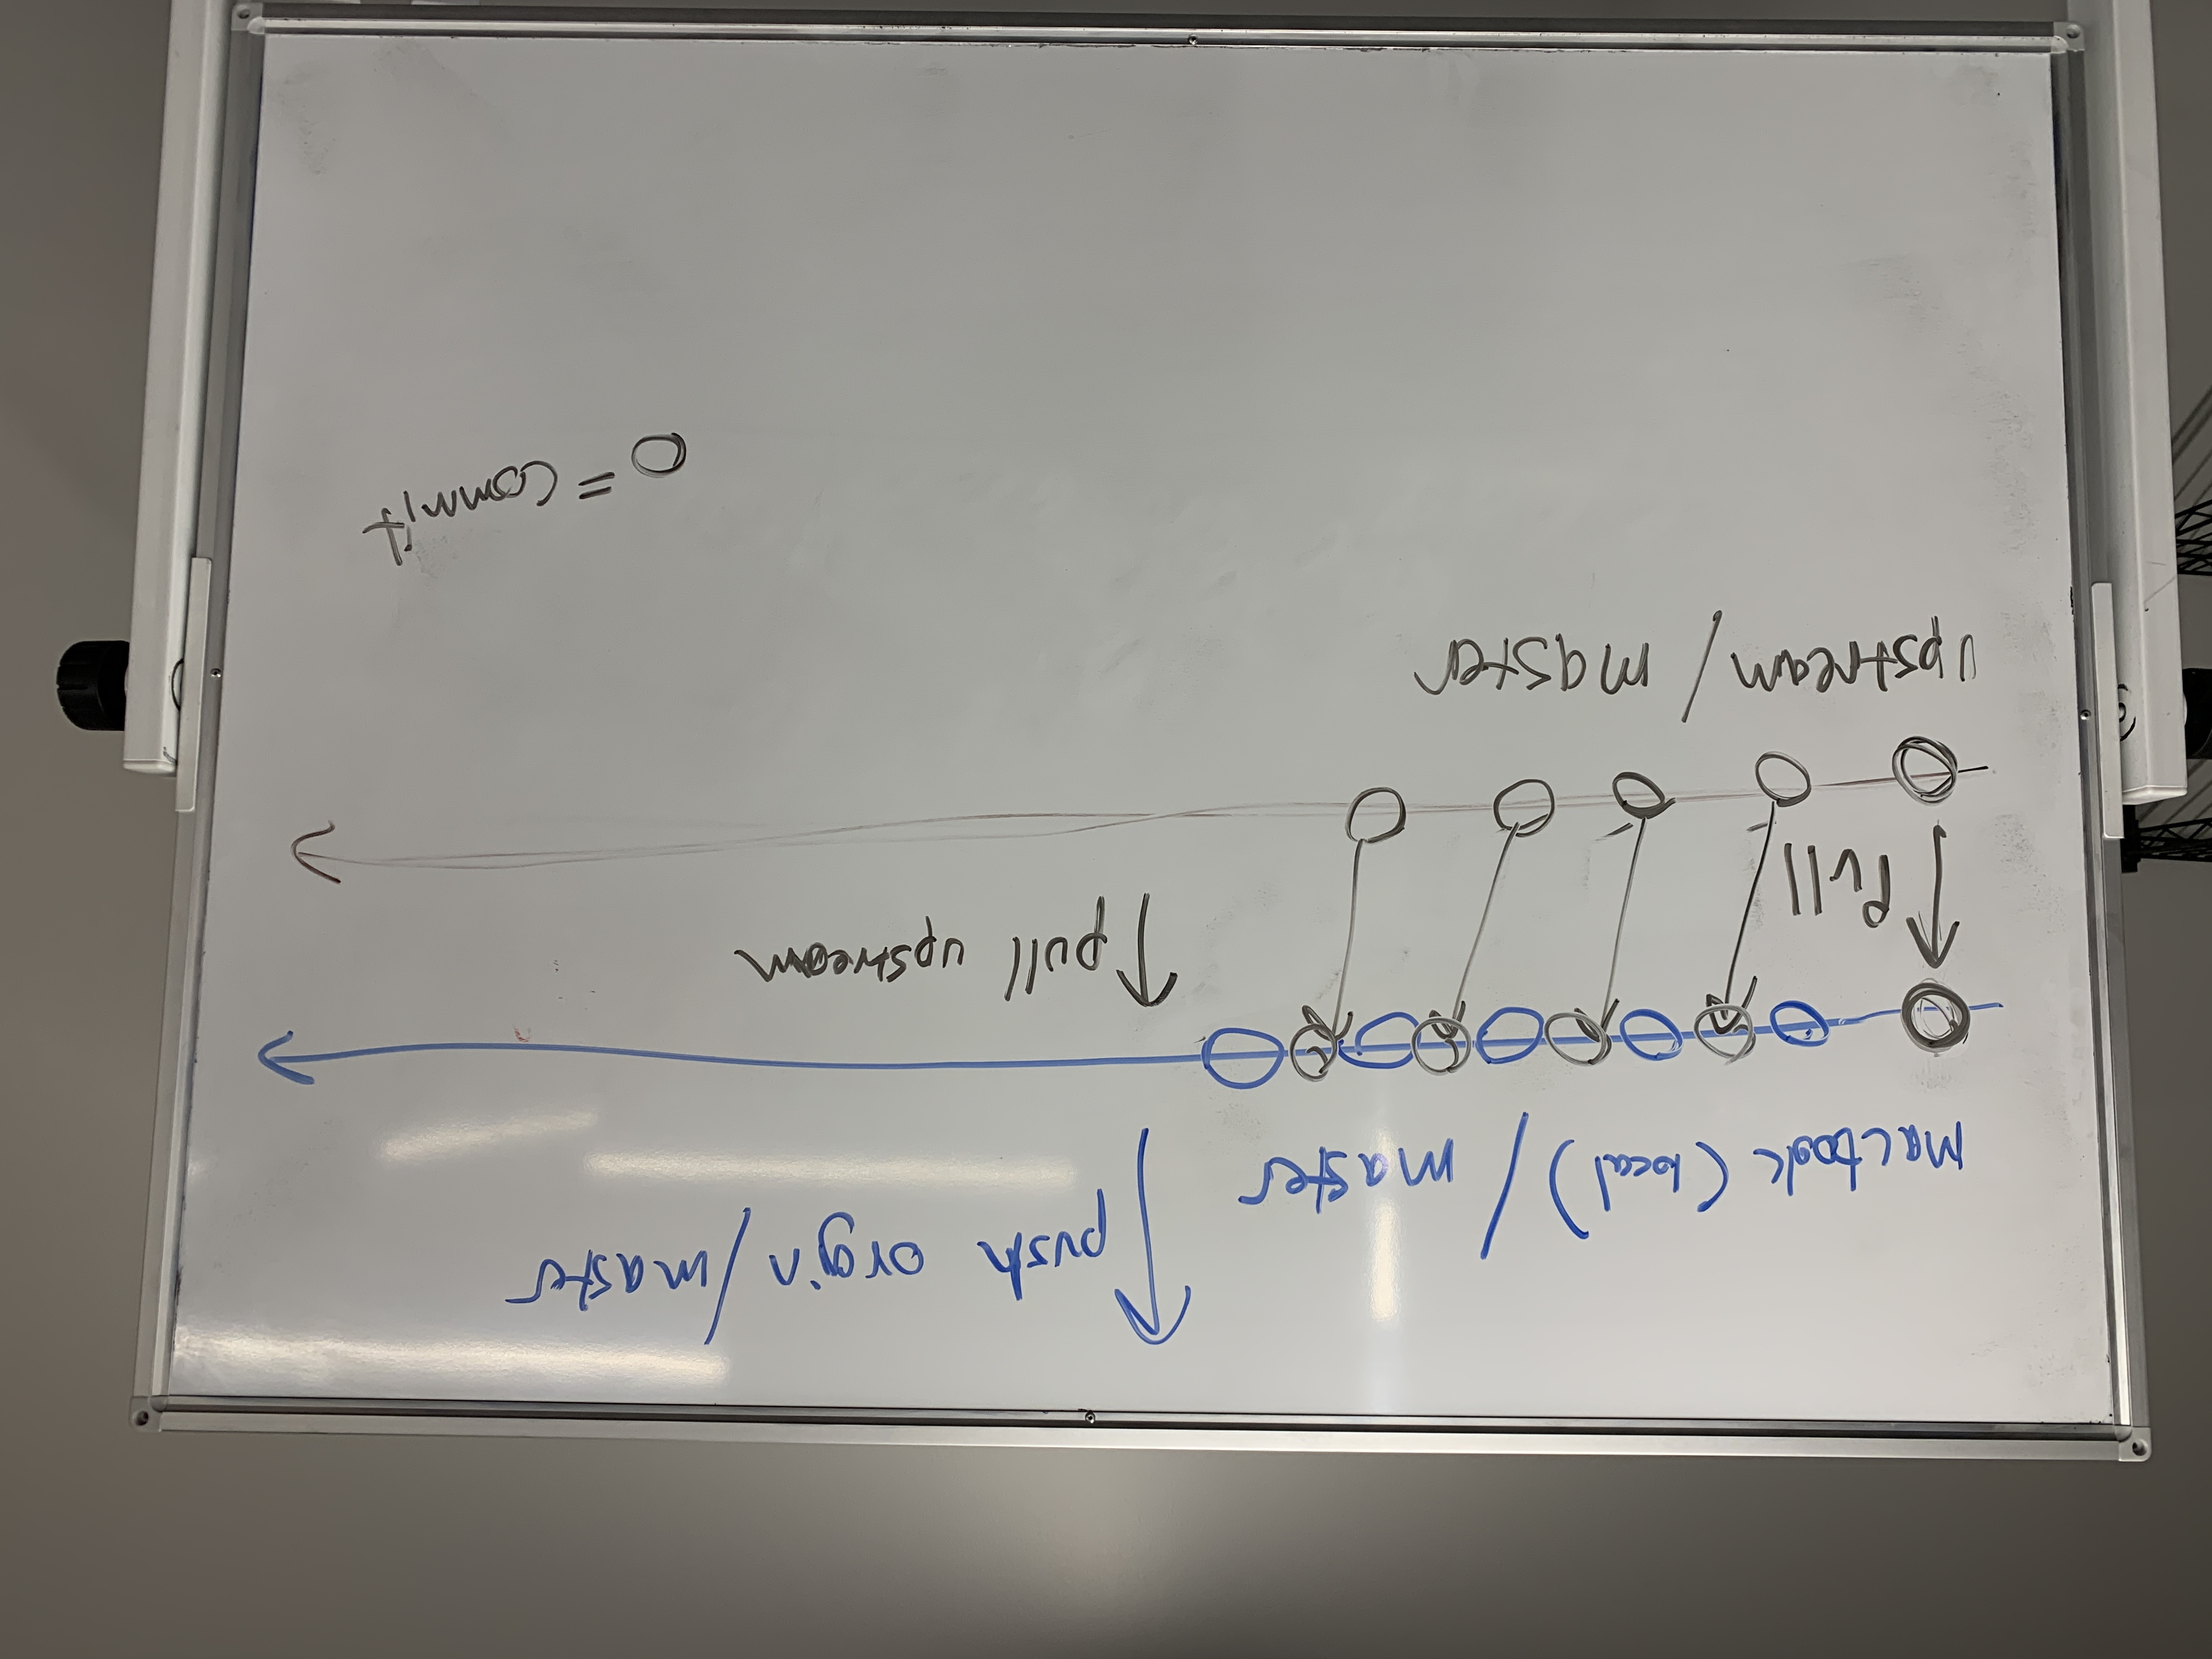 push orgin/master
Macbook (local) / master
Pull
pull upstream
upstream / master
O = commit